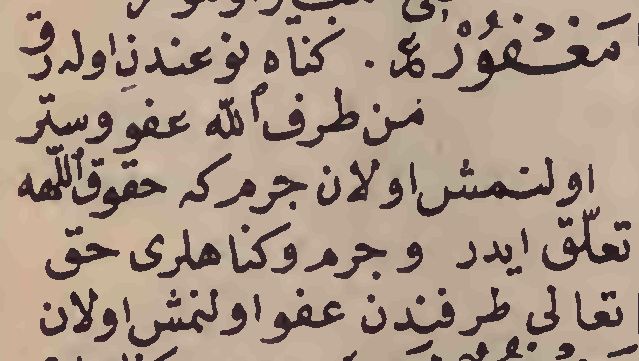 مَغْفُورْ ع . كناه نوعندن اوله رق
من طرف الله عفو وستر
اولنمش اولان جرم كه حقوق اللهه
تعلّق ايدر و جرم و كناهلرى حق
تعالى طرفندن عفو اولنمش اولان